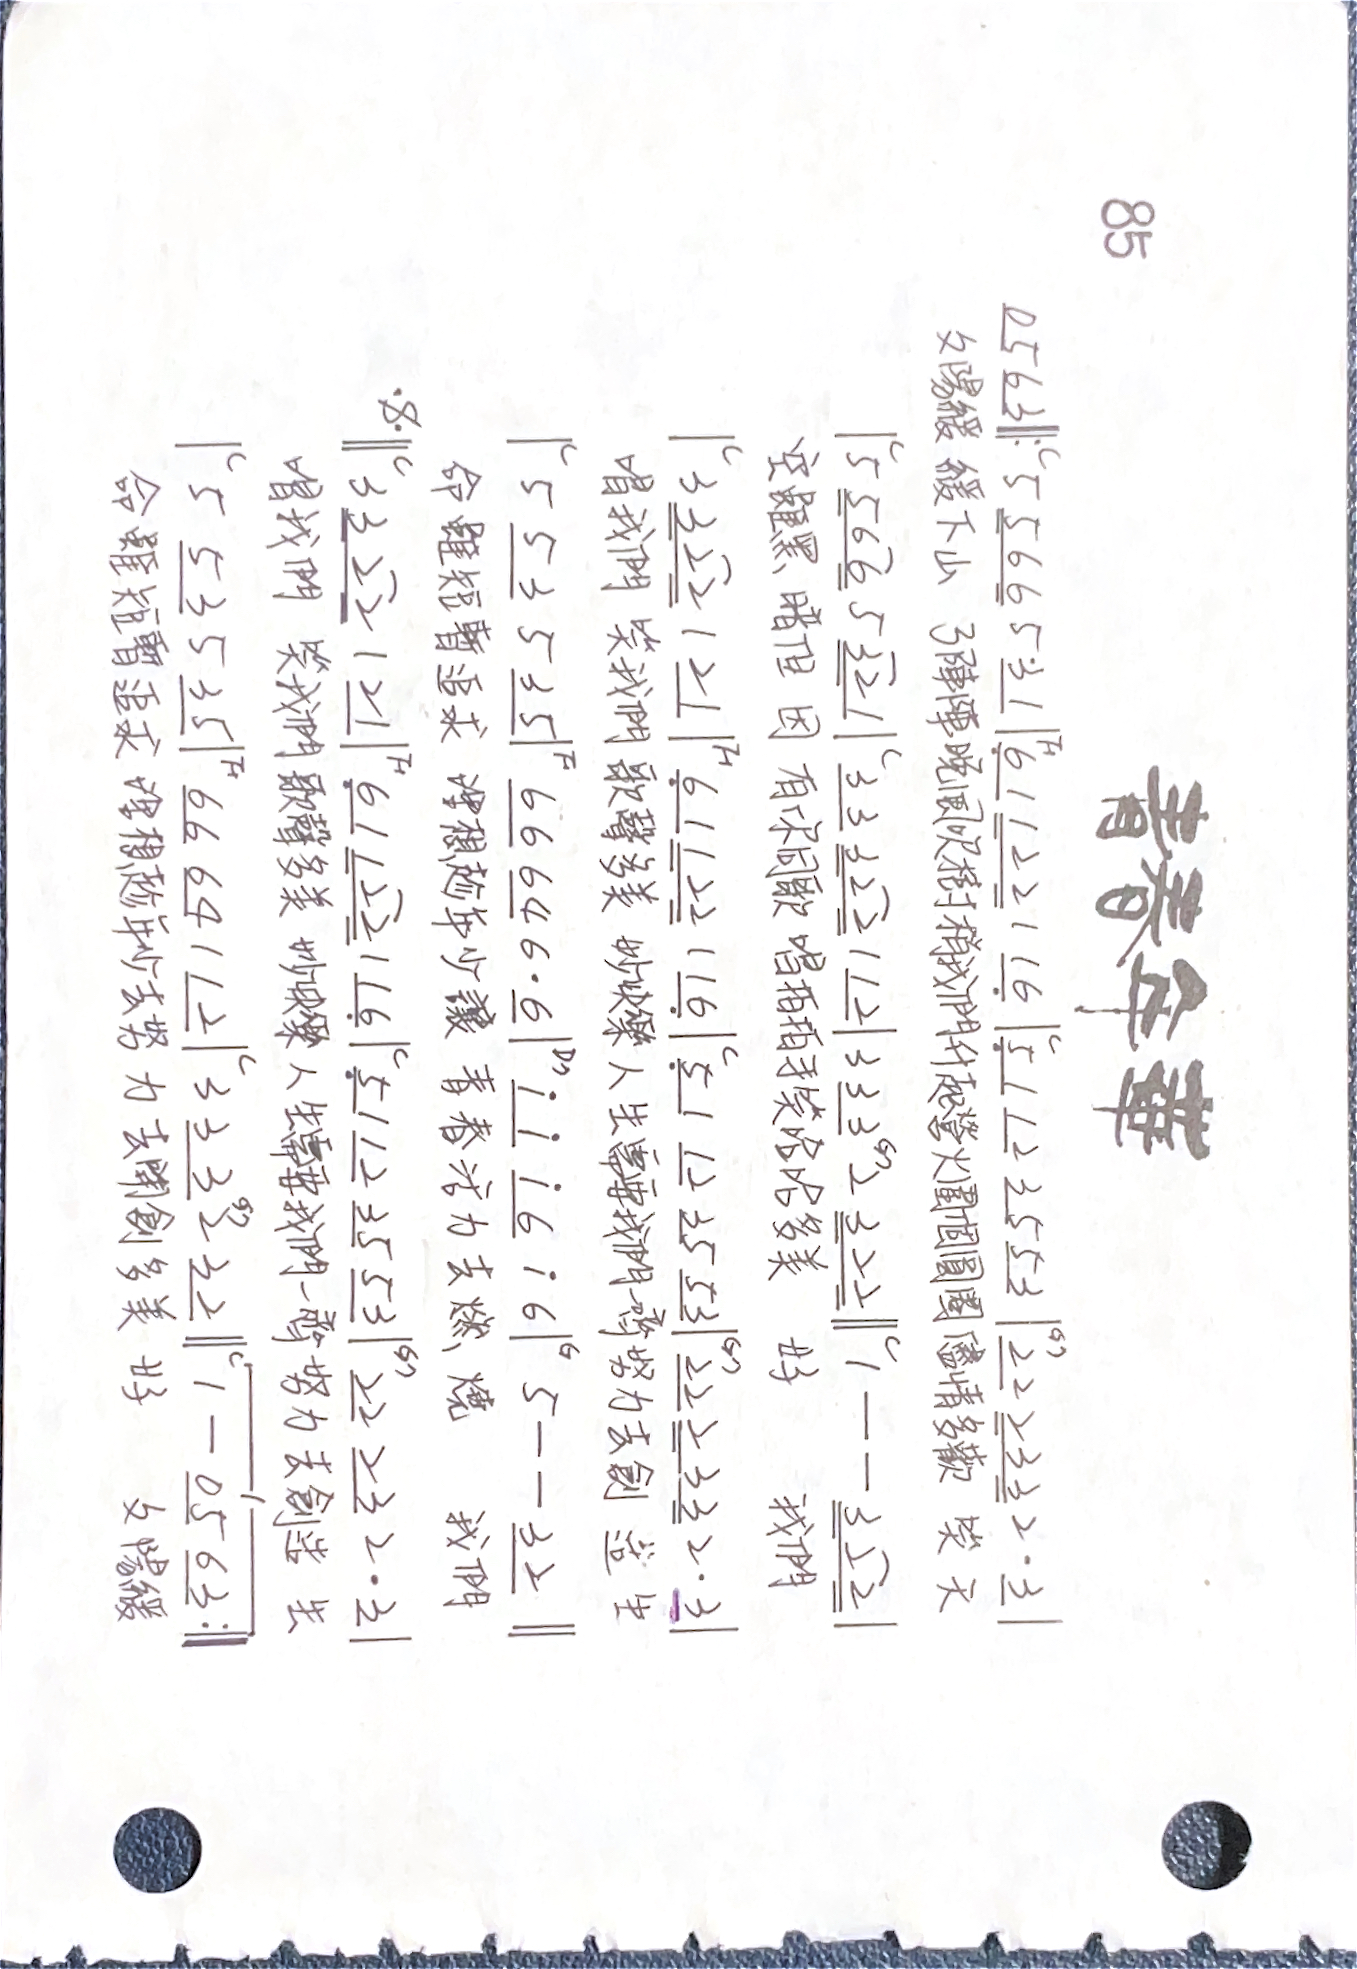 青春年華
85
0563‖:C 5 5665·31|F 6112211 6|C 5112 3553|G7 22 2332·3|
夕陽緩緩下山 了陣陣晚風吹樹梢我們升起營火圍個圓圈儘情多歡 笑 天
|C 5 566 5 321|C 33 322 1 12|3 33 G7 2 322‖C 1 — — 322|
空雖黑暗但 因 有你同歌 唱拍拍手笑哈哈多美 好 我們
|C 3 322 1 21|F 61122116|C 51 12 35 53|G7 22 2332·3|
唱我們 笑我們歌聲多美 妙快樂人生需要我們一齊努力去創 造 生
|C 5 53 5 35|F 66 64 6·6|D7 i i i 6 i 6|G 5 — — 32‖
命雖短暫追求 理想趁年少讓 青春活力去燃燒 我們
·S·‖C 3 322 1 21|F 61 122 116|C 5112 35 53|G7 22 23 2·3|
唱我們 笑我們歌聲多美 妙快樂人生需要我們一齊努力去創造 生
|C 5 53 5 35|F 66 64 1 12|C 3 33 G7 2 32‖C 1 1 — 05 63:‖
命雖短暫追求 理想趁年少去努 力 去開創多美 好 夕陽緩